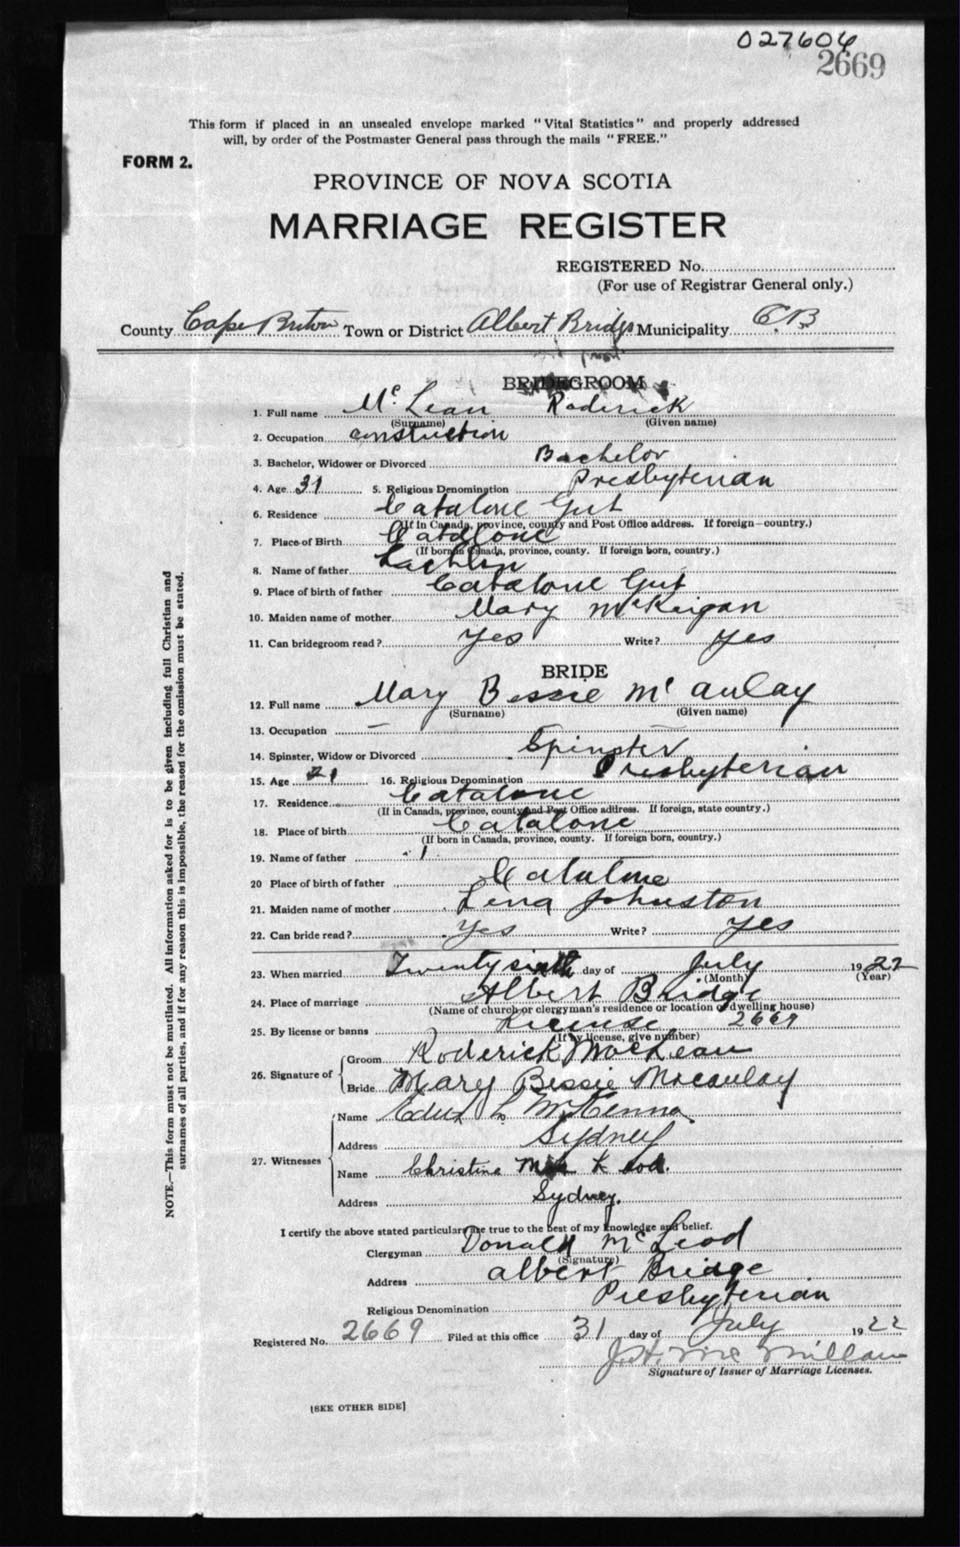 027604
2669
This form if placed in an unsealed envelope marked "Vital Statistics" and properly addressed
will, by order of the Postmaster General pass through the mails "FREE."
FORM 2.
PROVINCE OF NOVA SCOTIA
MARRIAGE REGISTER
REGISTERED No.
(For use of Registrar General only.)
County Cape Breton Town or District Albert Bridge Municipality C.B
BRIDEGROOM
1. Full name Mc Lean Roderick
(Surname) (Given name)
2. Occupation construction
3. Bachelor, Widower or Divorced Bachelor
4. Age 31 5. Religious Denomination Presbyterian
6. Residence Catalone Gut
(If in Canada, province, county and Post Office address. If foreign—country.)
7. Place of Birth Catalone
(If born in Canada, province, county. If foreign born, country.)
8. Name of father Lachlin
9. Place of birth of father Catalone Gut
10. Maiden name of mother Mary McKeigan
11. Can bridegroom read? Yes Write? Yes
BRIDE
12. Full name Mary Bessie Mc Aulay
(Surname) (Given name)
13. Occupation —
14. Spinster, Widow or Divorced Spinster
15. Age 21 16. Religious Denomination Presbyterian
17. Residence Catalone
(If in Canada, province, county and Post Office address. If foreign, state country.)
18. Place of birth Catalone
(If born in Canada, province, county. If foreign born, country.)
19. Name of father
20 Place of birth of father Catalone
21. Maiden name of mother Lena Johnston
22. Can bride read? Yes Write? Yes
23. When married Twenty sixth day of July 1922
(Month) (Year)
24. Place of marriage Albert Bridge
(Name of church or clergyman's residence or location of dwelling house)
25. By license or banns License 2669
(If by license, give number)
26. Signature of Groom Roderick MacLean
Bride Mary Bessie Macaulay
27. Witnesses Name L McKenna
Address Sydney
Name Christine
Address Sydney.
I certify the above stated particulars are true to the best of my knowledge and belief.
Clergyman Donald McLeod
(Signature)
Address Albert Bridge
Religious Denomination Presbyterian
Registered No. 2669 Filed at this office 31 day of July 1922
Signature of Issuer of Marriage Licenses.
[SEE OTHER SIDE]
NOTE.—This form must not be mutilated. All information asked for is to be given including full Christian and
surnames of all parties, and if for any reason this is impossible, the reason for the omission must be stated.